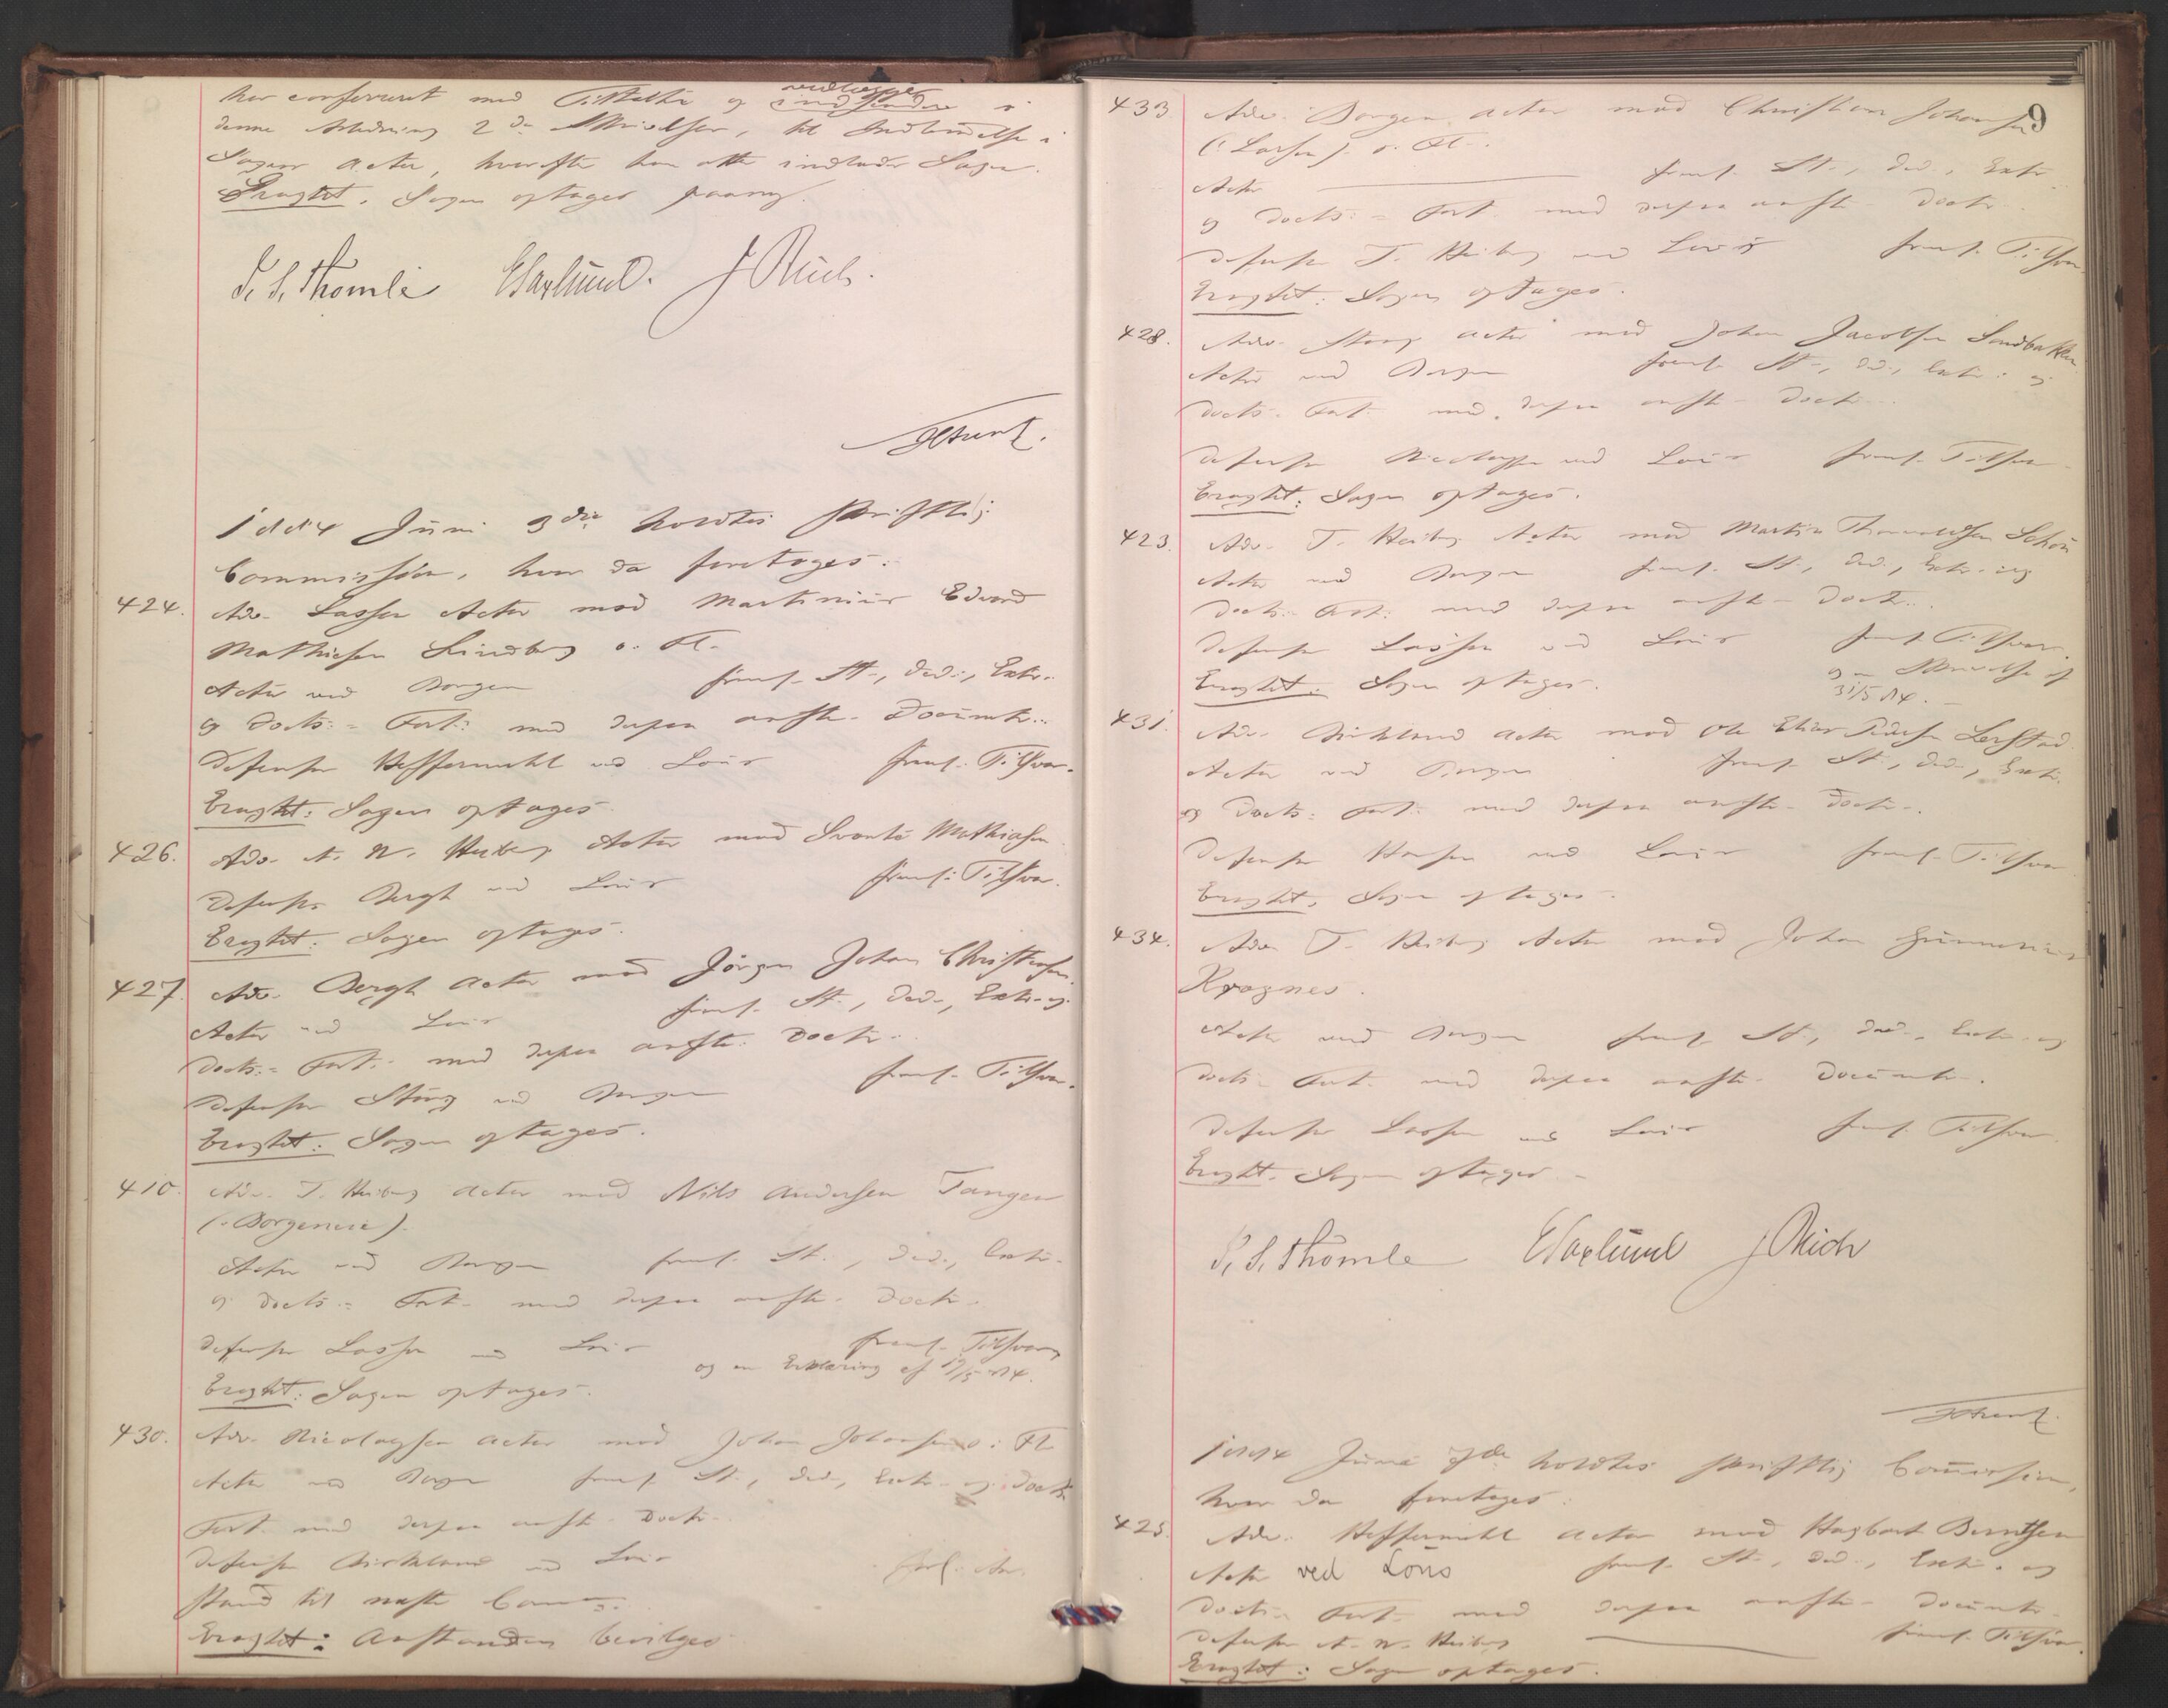 har confereret med Tiltalte og
denne Anledning 2 de Skrivelser, til Indlemmelse i
Sagens Acter, hvorefter han atter indlader Sagen.
Eragtet. Sagen optages paany.
S. S. Thomle
424.
1884 Juni 3die holdtes skriftlig
Commission, hvor da foretoges:
Adv. Lassen Actor mod Martinius Edvard
Mathiesen Lindberg o. Fl.
Actor ved Borgen fremf. St., Ded., Extr.
og Docts. = Fort. med derpaa anfte. Documtr.
Defensor Heffermehl ved Lous fremf. Tilsvar.
Eragtet: Sagen optages.
426.
Adv. A. W. Heiberg Actor mod Svante Mathiasen
Defensor Bergh ved Lous fremf. Tilsvar.
Eragtet: Sagen optages.
427.
Adv. Bergh Actor mod Jörgen Johan Christensen
Actor ved Lous fremf. St., Ded., Extr. og
Docts. = Fort. med derpaa anfte. Doctr.
Defensor Stang ved Borgen fremf. Tilsvar.
Eragtet: Sagen optages.
410.
Adv. T. Heiberg Actor mod Nils Andersen Tangen
Actor ved Borgen fremf. St., Ded., Extr.
og Docts. = Fort. med derpaa anfte. Doctr.
Defensor Lassen ved Lous fremf. Tilsvar
og en Erklæring af 19/5 84.
Eragtet: Sagen optages.
430.
Adv. Nicolaysen Actor mod Johan Johansen o. Fl.
Actor ved Borgen fremf. St., Ded., Extr. og Docts
Fort. med derpaa anfte. Doctr.
Defensor Birkland ved Lous forl. An-
stand til næste Comm.
Eragtet: Anstanden bevilges
9
433.
Adv. Borgen Actor mod Christian Johansen
(: Larsen) o. Fl.
Actor fremf. St., Ded., Extr.
og Docts. = Fort. med derpaa anfte. Doctr.
Defensor T. Heiberg ved Lous fremf. Tilsvar
Eragtet: Sagen optages.
428.
Adv. Stang Actor mod Johan Jacobsen Sandbakken
Actor ved Borgen fremf. St., Ded., Extr. og
Docts. Fort. med derpaa anfte. Doctr.
Defensor Nicolaysen ved Lous fremf. Tilsvar
Eragtet: Sagen optages.
423.
Adv. T. Heiberg Actor mod Martin Thorvaldsen Schou
Actor ved Borgen fremf. St., Ded., Extr. og
Docts. Fort. med derpaa anfte. Doctr.
Defensor Lassen ved Lous fremf. Tilsvar
og en Skrivelse af
31/5 84.
Eragtet: Sagen optages.
431.
Adv. Birkland Actor mod Ole
Actor ved Borgen fremf. St., Ded., Extr.
og Docts. Fort. med derpaa anfte. Doctr.
Defensor Hansen ved Lous fremf. Tilsvar
Eragtet. Sagen optages.
434.
Adv. T. Heiberg Actor mod Johan
Krognes.
Actor ved Borgen fremf. St., Ded., Extr. og
Docts. Fort. med derpaa anfte. Documtr.
Defensor Lassen ved Lous fremf. Tilsvar
Eragtet. Sagen optages.
S. S. Thomle
1884 Juni 7de holdtes skriftlig Commission,
hvor da foretoges:
425.
Adv. Heffermehl Actor mod Hagbart Berntsen
Actor ved Lous fremf. St., Ded., Extr. og
Docts. Fort. med derpaa anfte. Documtr.
Defensor A. W. Heiberg fremf. Tilsvar.
Eragtet: Sagen optages.